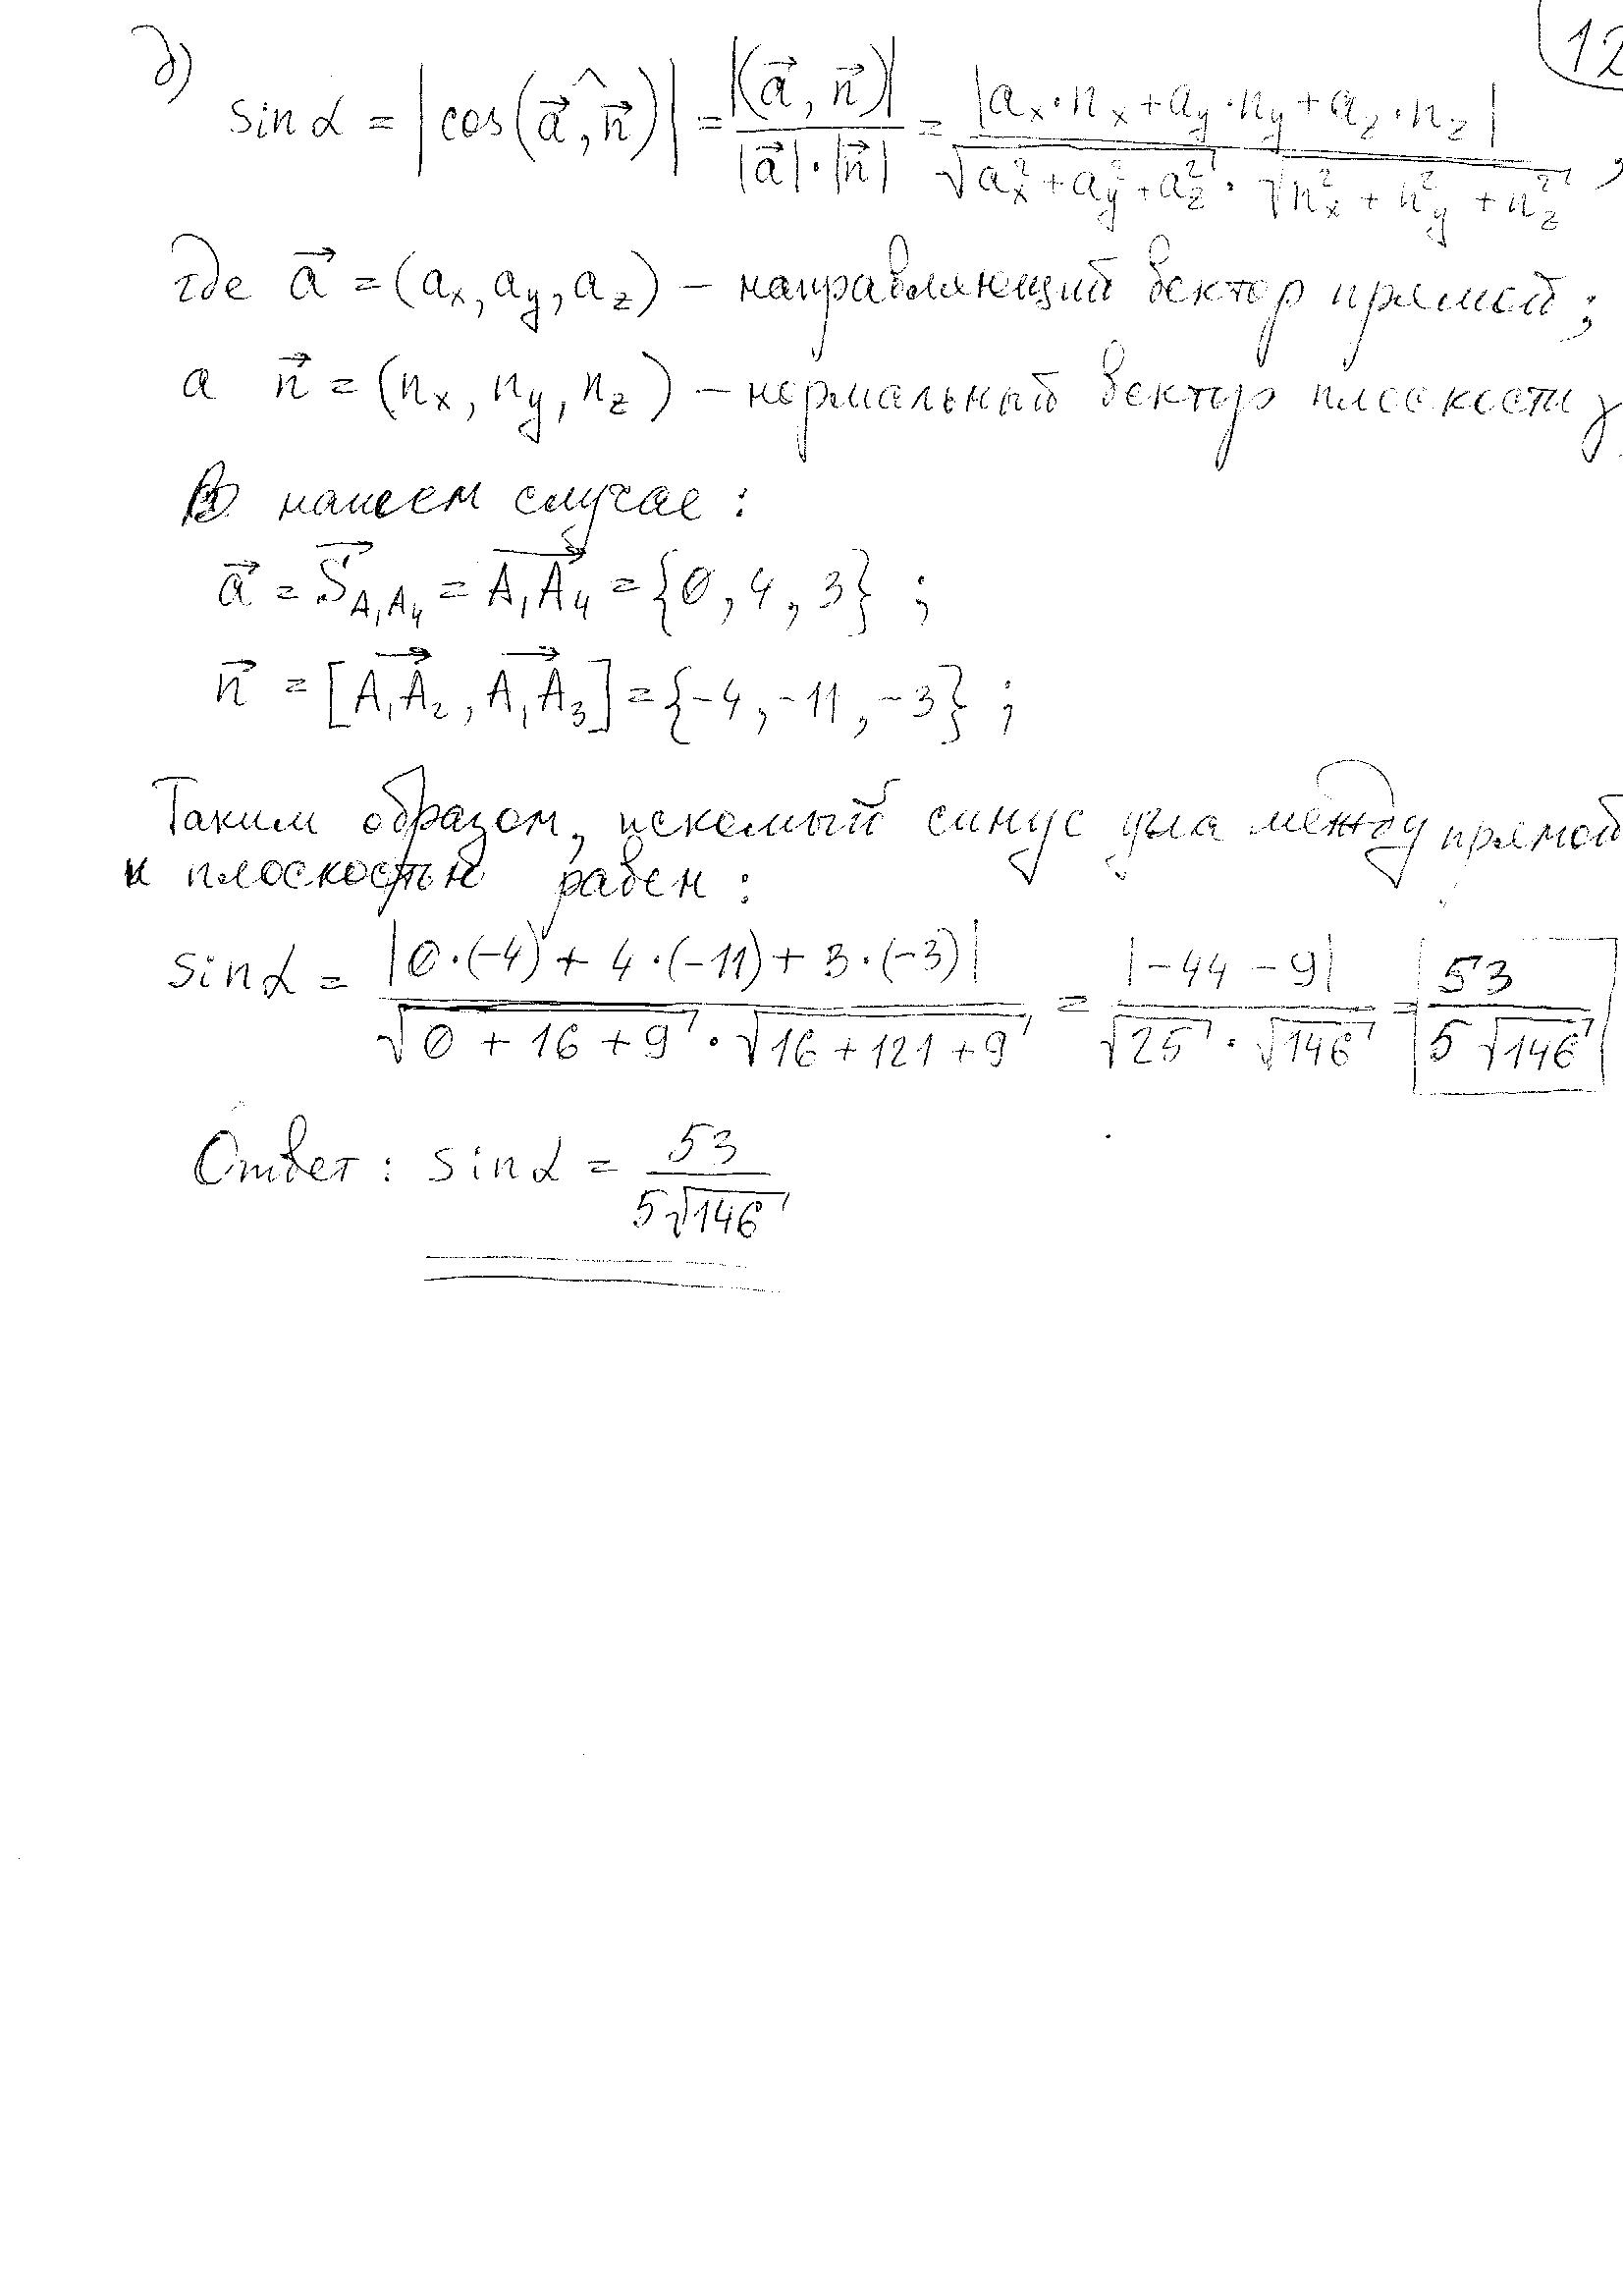 12
д) sin α = |cos(a⃗,^n⃗)| = |(a⃗, n⃗)| / (|a⃗|·|n⃗|) = |aₓ·nₓ + a_y·n_y + a_z·n_z| / (√(aₓ² + a_y² + a_z²) · √(nₓ² + n_y² + n_z²)),
где a⃗ = (aₓ, a_y, a_z) – направляющий вектор прямой;
а n⃗ = (nₓ, n_y, n_z) – нормальный вектор плоскости;
В нашем случае:
a⃗ = S⃗_A₁A₄ = A₁A₄⃗ = {0, 4, 3};
n⃗ = [A₁A₂⃗, A₁A₃⃗] = {-4, -11, -3};
Таким образом, искомый синус угла между прямой
и плоскостью равен:
sin α = |0·(-4) + 4·(-11) + 3·(-3)| / (√(0 + 16 + 9) · √(16 + 121 + 9)) = |-44 - 9| / (√25 · √146) = 53 / (5√146)
Ответ: sin α = 53 / (5√146)